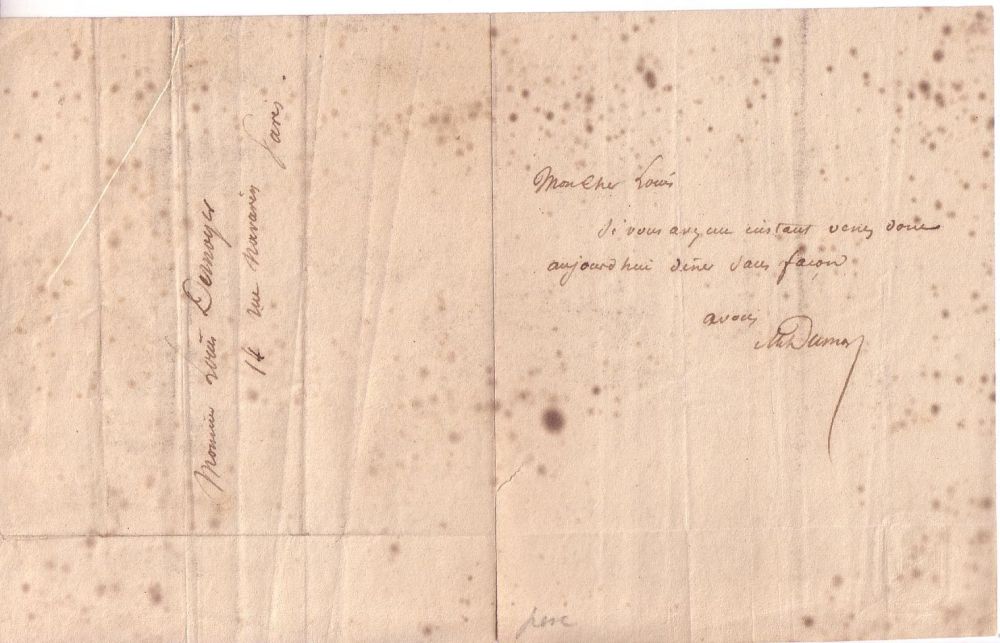 Monsieur Louis Desnoyer
14 rue Navarin
Paris.
Mon Cher Louis
Si vous avez un instant venez donc
aujourd'hui diner sans façon
a vous
Al Dumas
père